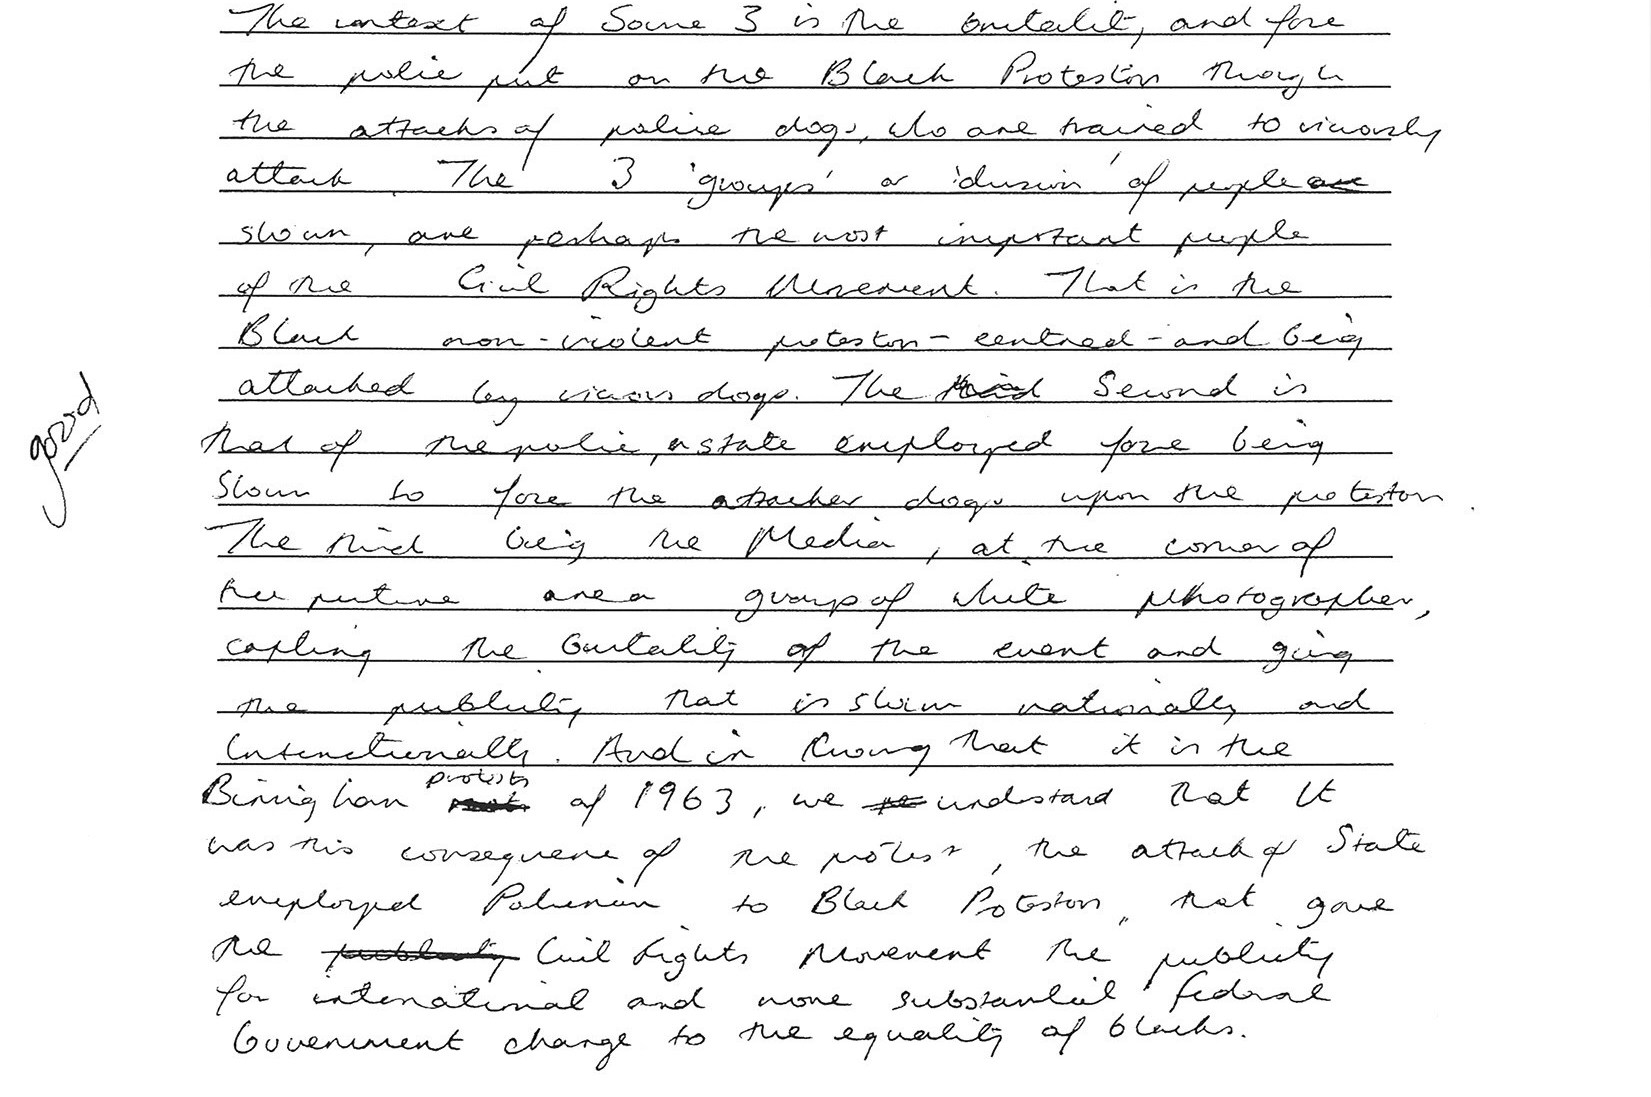 The context of Source 3 is the brutality, and force
the police put on the Black Protestors through
the attacks of police dogs, who are trained to viciously
attack. The 3 'groups' or 'division' of people are
shown, are perhaps the most important people
of the Civil Rights Movement. That is the
Black non-violent protestors - centred - and being
attacked by vicious dogs. The third Second is
that of the police, a state employed force being
Shown to force the attacker dogs upon the protestors.
The third being the Media, at the corner of
the picture are a group of white photographer,
good
the brutality of the event and giving
the publicity that is shown nationally and
And in knowing that it is the
Birmingham protests of 1963, we understand that It
was this consequence of the protest, the attack of State
employed Policemen to Black Protestors, that gave
the publicity Civil Rights Movement the publicity
for international and more substantial federal
Government change to the equality of blacks.